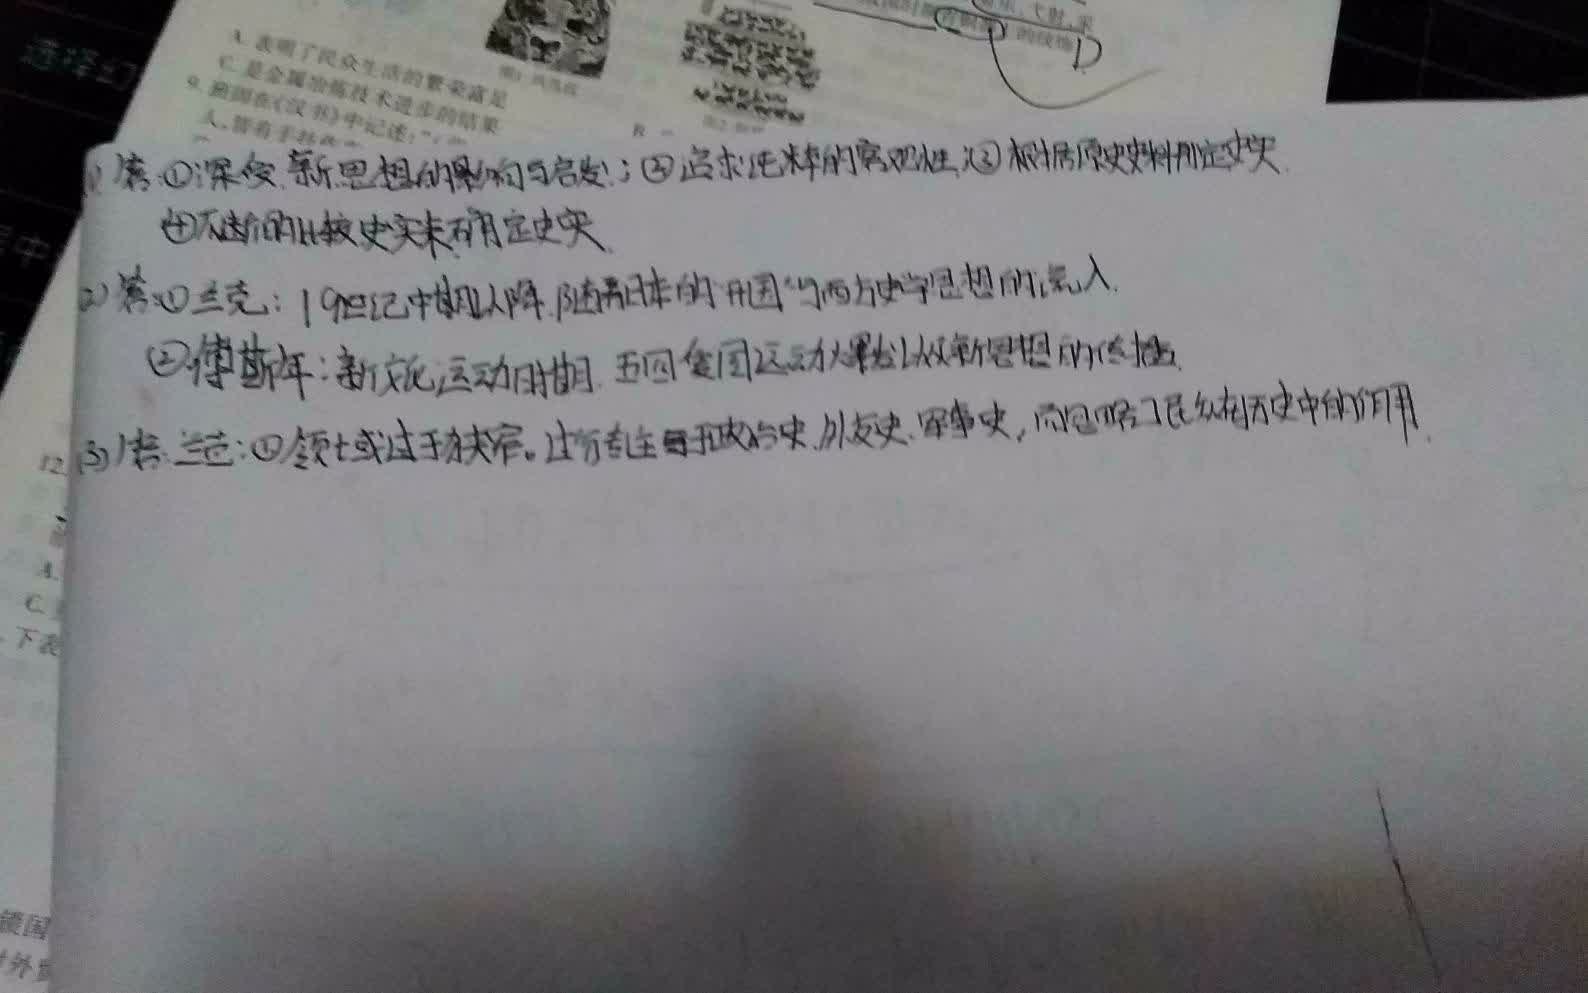 选择
A. 表明了民众生活的繁荣富足
C. 是金属冶炼技术进步的结果
9. 班固在《汉书》中记述:"
D
1)答:①深受新思想的影响与启发;②追求纯粹的客观性;③根据原史史料判定史实.
④不断的比较史实来确定史实.
2)答:①兰克:19世纪中期以降.随着日本的开国与西方史学思想的流入.
②傅斯年:新文化运动时期.五四爱国运动以及新思想的传播.
(3)答.兰克:①领土或过于狭窄。过分专注于政治史.外交史.军事史,而忽略了民众在历史中的作用.
12.
A.
C.
下表
锁国
外